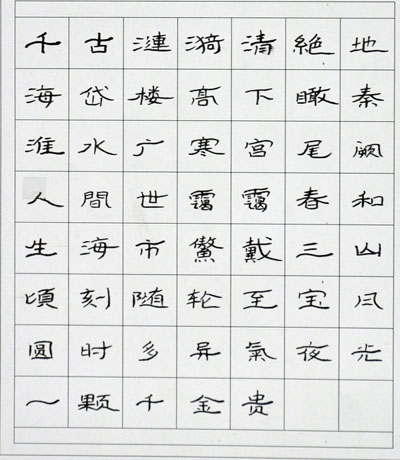 千古漣漪清絕地
海岱楼高下瞰秦
淮水广寒宫尾阙
人間世靄靄春和
生海市鰲戴三山
頃刻随轮至宝月
圓时多异氣夜光
一颗千金贵